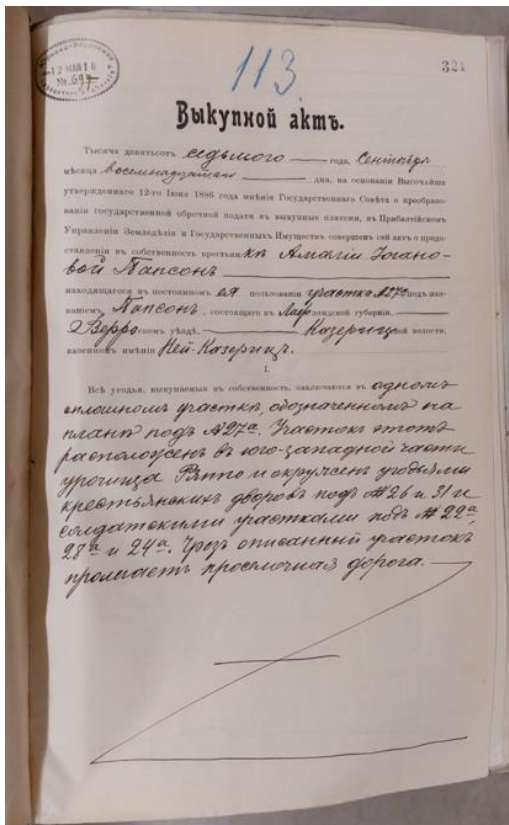 12 МАЯ 16
№ 697
113
321
Выкупной актъ.
Тысяча девятьсотъ седьмого года, Сентября
мѣсяца восемнадцатаго дня, на основаніи Высочайше
утвержденнаго 12-го Іюня 1886 года мнѣнія Государственнаго Совѣта о преобразо-
ваніи государственной оброчной подати въ выкупные платежи, въ Прибалтійскомъ
Управленіи Земледѣлія и Государственныхъ Имуществъ совершенъ сей актъ о предо-
ставленіи въ собственность крестьянкѣ Амаліи Іогано-
вой Папсонъ
находящагося въ постоянномъ ея пользованіи участка №27а подъ наз-
ваніемъ Папсонъ, состоящаго въ Лифляндской губерніи,
Верроскомъ уѣздѣ, Казерицкой волости,
казенномъ имѣніи Ней-Казерицъ.
I.
Всѣ угодья, выкупаемыя въ собственность, заключаются въ одномъ
сплошномъ участкѣ, обозначенномъ на
планѣ подъ №27а. Участокъ этотъ
расположенъ въ юго-западной части
урочища Ряппо и окруженъ угодьями
крестьянскихъ дворовъ подъ №№26 и 31 и
солдатскими участками подъ №№ 22а,
28а и 24а. Чрезъ описанный участокъ
пролегаетъ проселочная дорога.